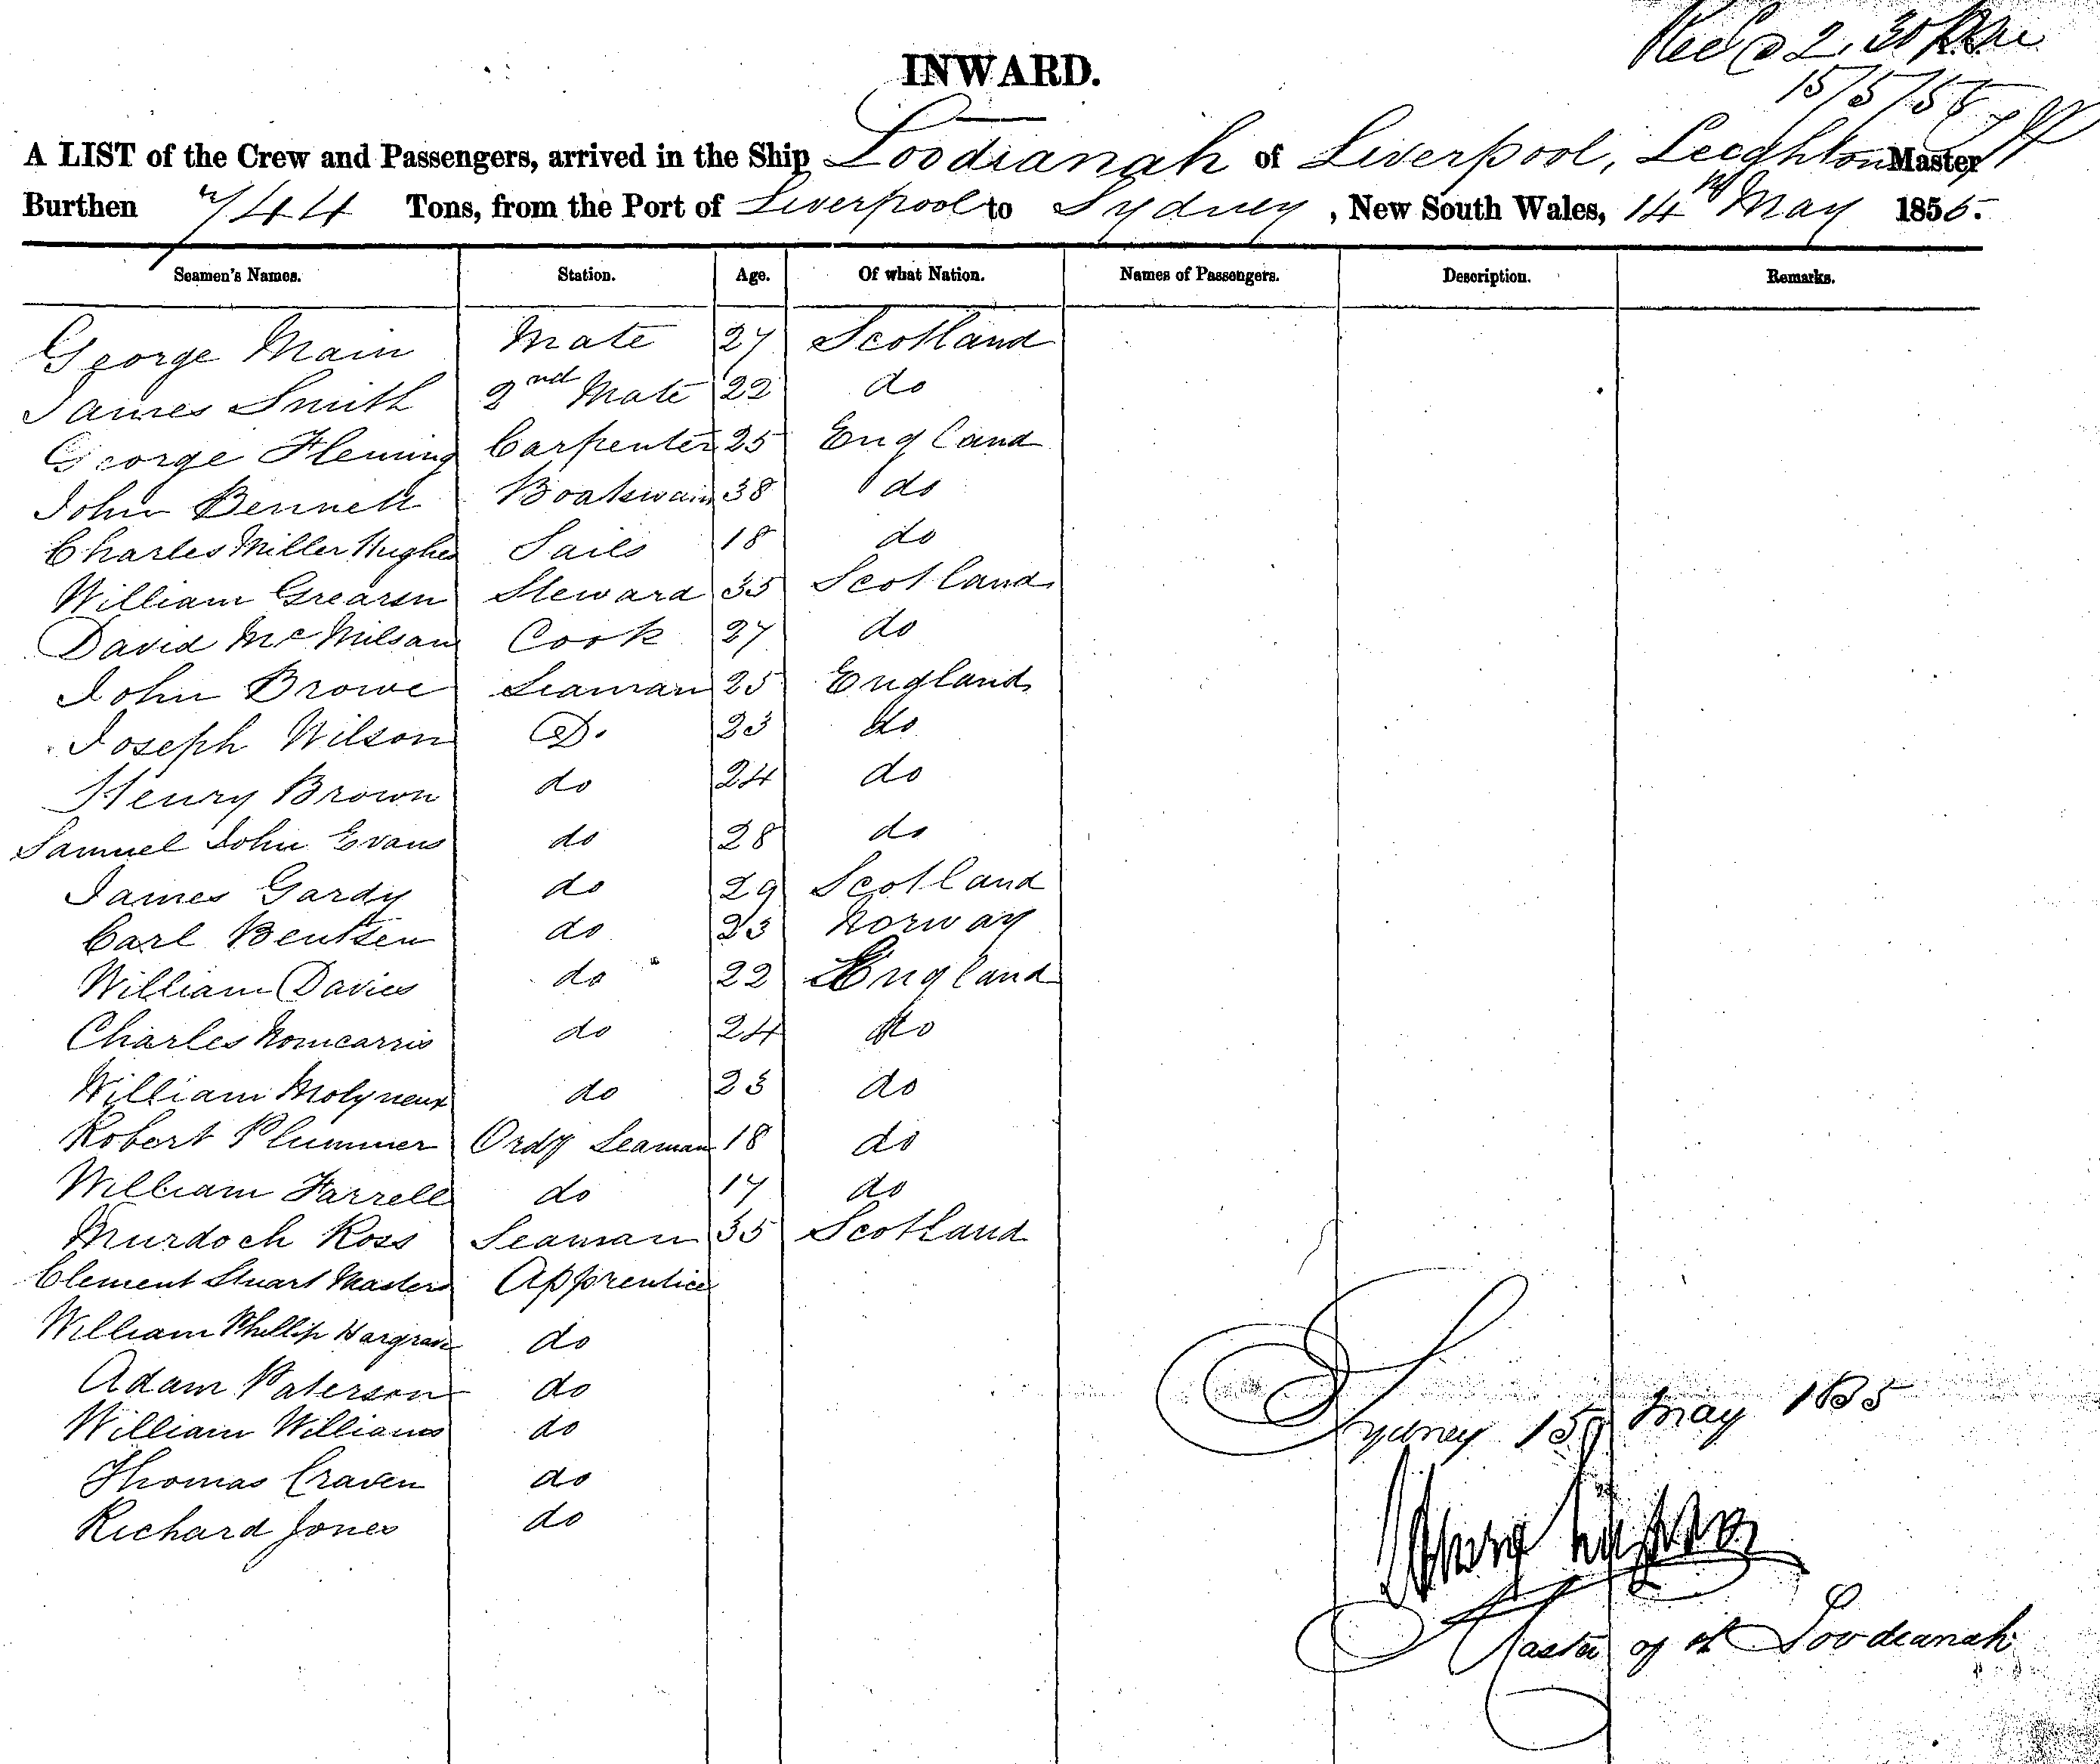 Recd @ 2.30 pm
15/5/55
INWARD.
A LIST of the Crew and Passengers, arrived in the Ship Loodianah of Liverpool, Leighton Master
Burthen 744 Tons, from the Port of Liverpool to Sydney, New South Wales, 14th May 1855.
Seamen's Names. Station. Age. Of what Nation. Names of Passengers. Description. Remarks.
George Main Mate 27 Scotland
James Smith 2nd Mate 22 do
George Fleming Carpenter 25 England
John Bennett Boatswain 38 do
Charles Miller Hughes Sails 18 do
William Grearsn Steward 35 Scotland
David Mc Milsam Cook 27 do
John Browe Seaman 25 England
Joseph Wilson D. 23 do
Henry Brown do 24 do
Samuel John Evans do 28 do
James Gardy do 29 Scotland
Carl Bentsen do 23 Norway
William Davies do 22 England
Charles do 24 do
William Molyneux do 23 do
Robert Plummer Ordy Seaman 18 do
William Farrell do 17 do
Murdoch Ross Seaman 35 Scotland
Clement Stuart Masters Apprentice
William Phillip Hargrave do
Adam Paterson do
William Williams do
Thomas Craven do
Richard Jones do
Sydney 15 May 1855
Master of st Loodianah